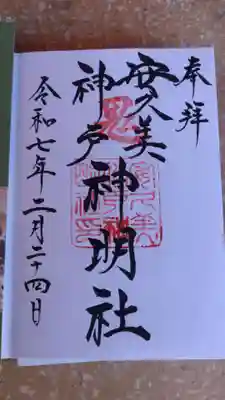 奉拝
安久美
神戸神明社
令和七年二月二十四日